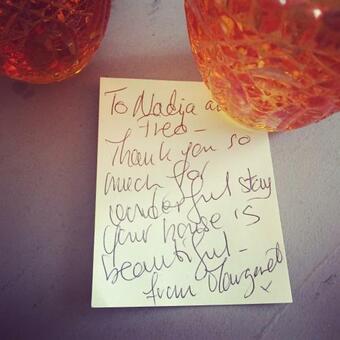 To Nadja
Fred –
Thank you so
much for
wonderful stay
your house is
beautiful –
from Margaret
x